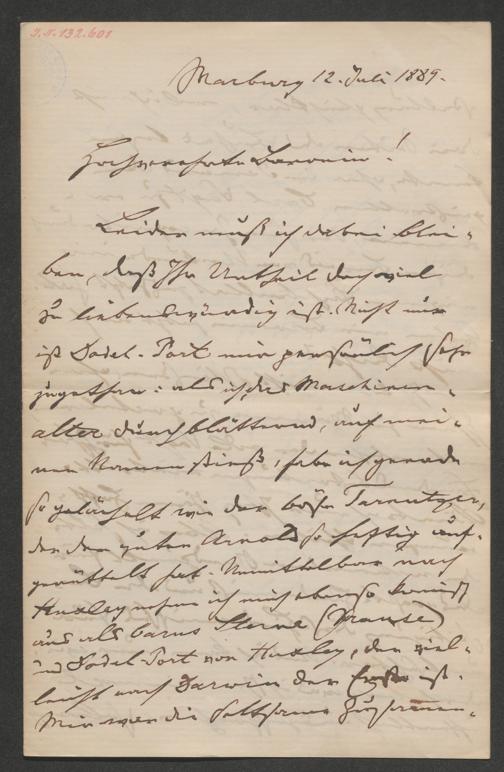 I.N. 132.601
Marburg 12. Juli 1889.
Hochverehrte Baronin!
Leider muß ich dabei blei-
ben, daß Ihr Urtheil doch viel
zu liebenswürdig ist. Nicht nur
ist Dodel-Port mir persönlich sehr
zugethan: als ich, das Maschinen-
alter durchblätternd, auf mei-
nen Namen stieß, habe ich gerade
so gelächelt wie der böse
der den guten Arnold so heftig auf-
gerüttelt hat. Unmittelbar nach
Huxley nehme ich mich ebenso komisch
aus als Carus Sterne (Krause)
und Dodel-Port von Huxley, der viel-
leicht nach Darwin der Erste ist.
Mir war die seltsame Zusammen-